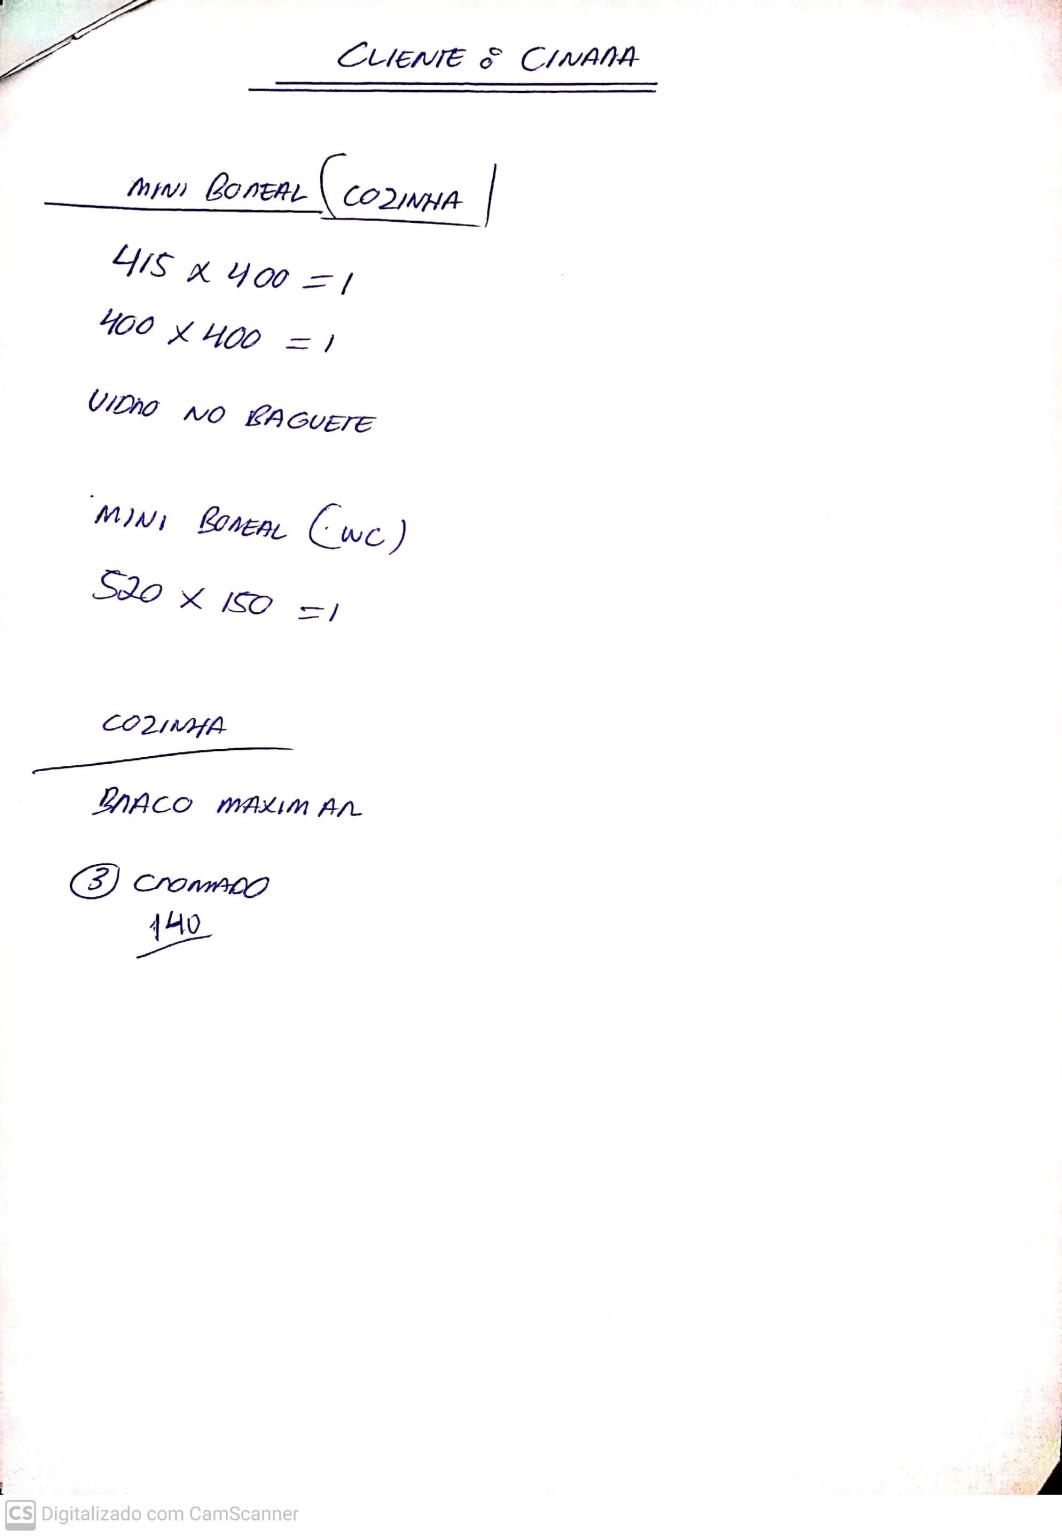 CLIENTE : CINARA
MINI BOREAL (COZINHA)
415 x 400 = 1
400 x 400 = 1
VIDRO NO BAGUETE
MINI BOREAL (WC)
520 x 150 = 1
COZINHA
BRACO MAXIM AR
3 CROMADO
140
CS Digitalizado com CamScanner